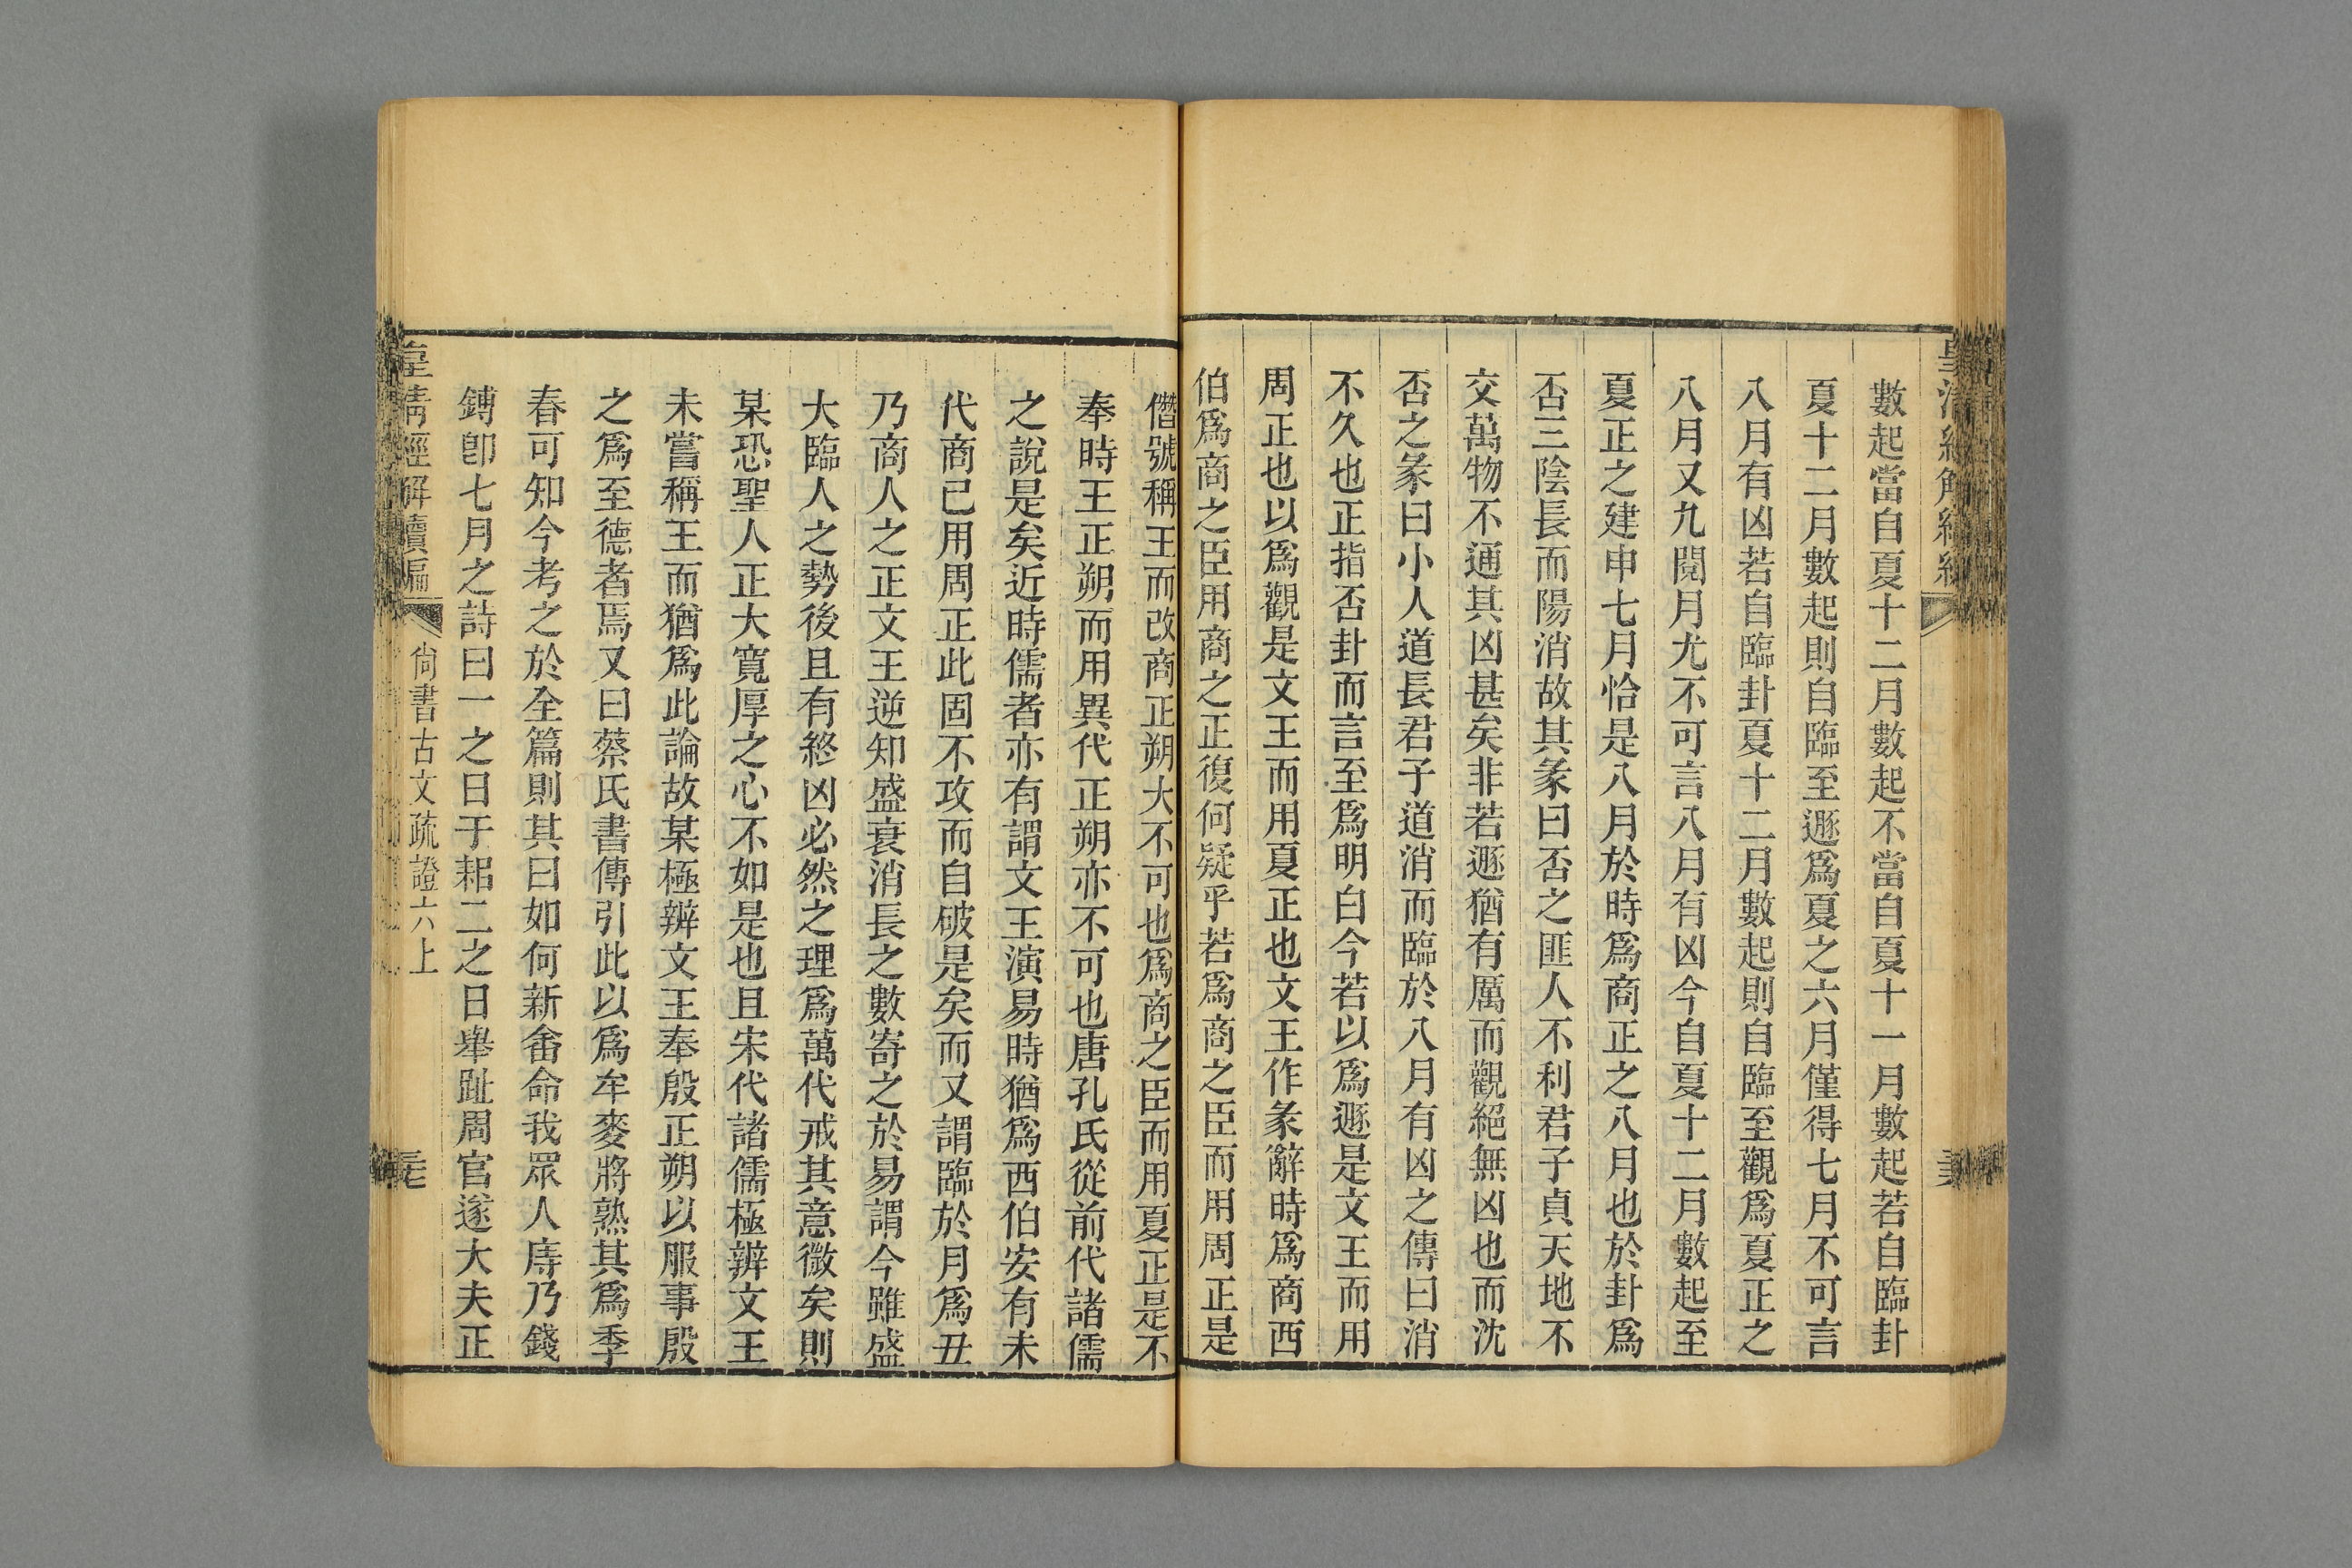 數起當自夏十二月數起不當自夏十一月數起若自臨卦
夏十二月數起則自臨至遯爲夏之六月僅得七月不可言
八月有凶若自臨卦夏十二月數起則自臨至觀爲夏正之
八月又九閱月尤不可言八月有凶今自夏十二月數起至
夏正之建申七月恰是八月於時爲商正之八月也於卦爲
否三陰長而陽消故其彖曰否之匪人不利君子貞天地不
交萬物不通其凶甚矣非若遯猶有厲而觀絕無凶也而沈
否之彖曰小人道長君子道消而臨於八月有凶之傳曰消
不久也正指否卦而言至爲明白今若以爲遯是文王而用
周正也以爲觀是文王而用夏正也文王作彖辭時爲商西
伯爲商之臣用商之正復何疑乎若爲商之臣而用周正是
僭號稱王而改商正朔大不可也爲商之臣而用夏正是不
奉時王正朔而用異代正朔亦不可也唐孔氏從前代諸儒
之說是矣近時儒者亦有謂文王演易時猶爲西伯安有未
代商已用周正此固不攻而自破是矣而又謂臨於月爲丑
乃商人之正文王逆知盛衰消長之數寄之於易謂今雖盛
大臨人之勢後且有終凶必然之理爲萬代戒其意微矣則
某恐聖人正大寬厚之心不如是也且宋代諸儒極辨文王
未嘗稱王而猶爲此論故某極辨文王奉殷正朔以服事殷
之爲至德者焉又曰蔡氏書傳引此以爲牟麥將熟其爲季
春可知今考之於全篇則其曰如何新畬命我眾人庤乃錢
鎛卽七月之詩曰一之日于耜二之日舉趾周官遂大夫正
皇清經解續編
尚書古文疏證六上